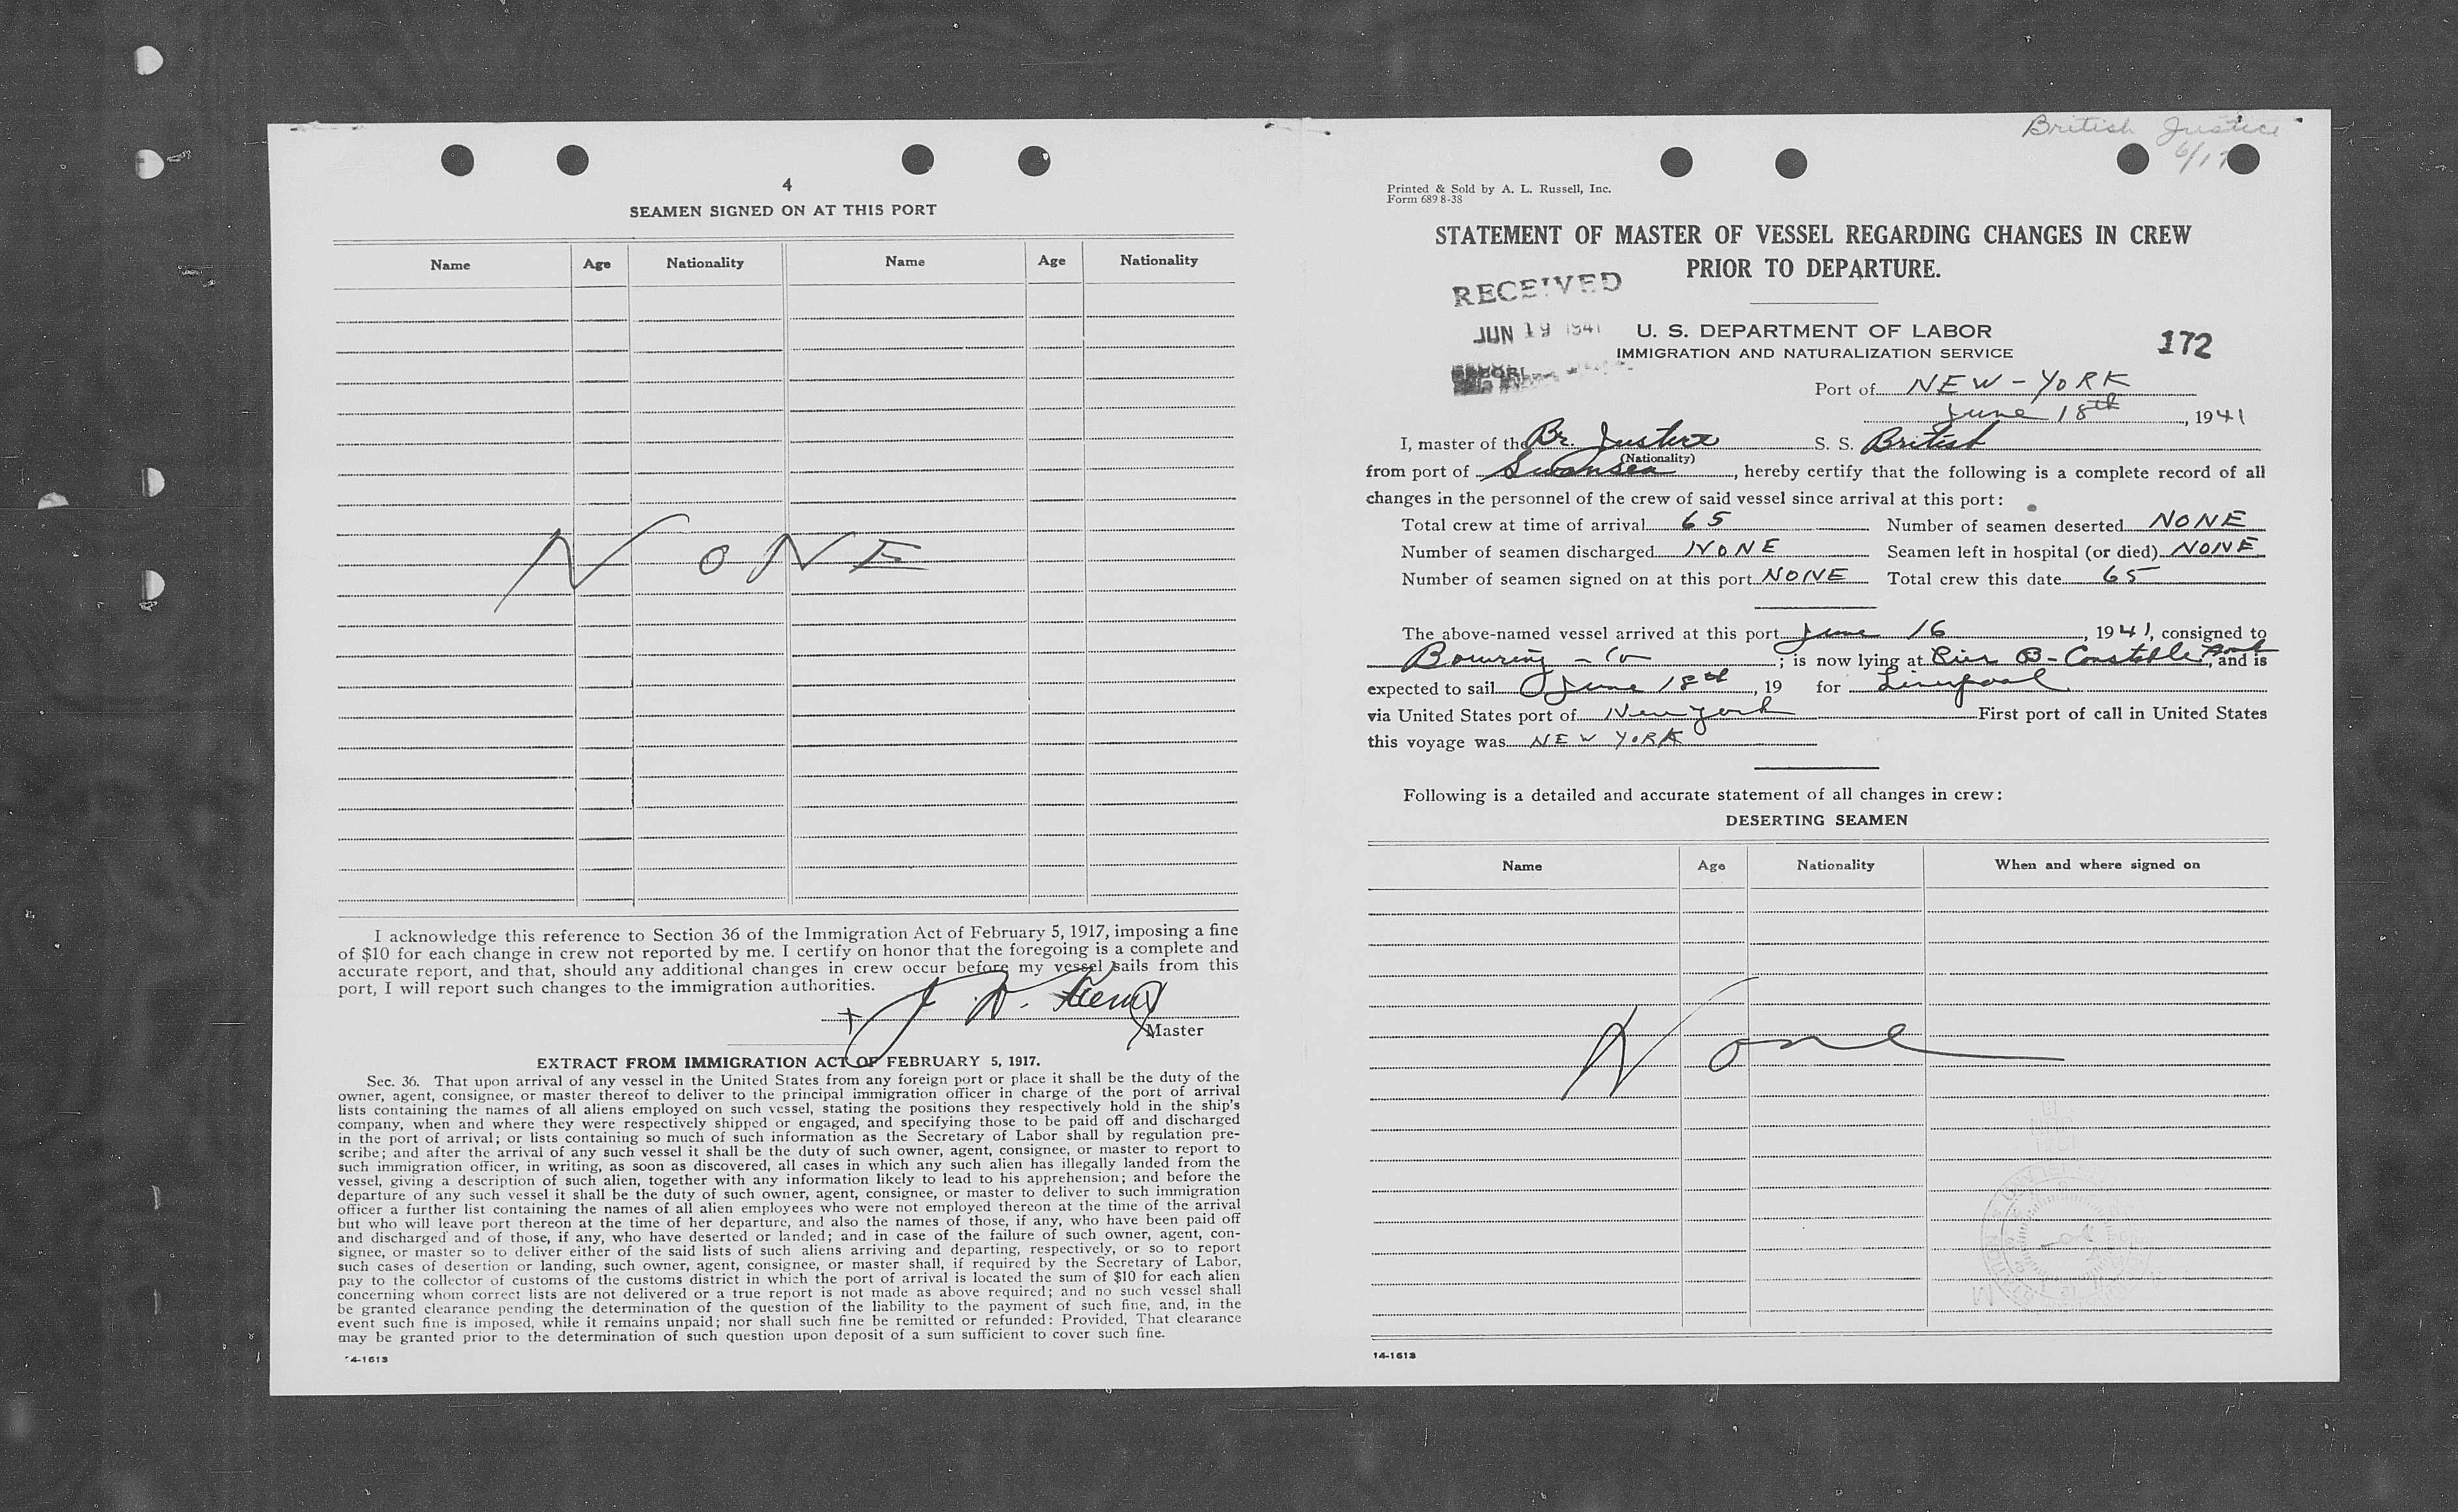 4
SEAMEN SIGNED ON AT THIS PORT
Name Age Nationality Name Age Nationality
NONE
I acknowledge this reference to Section 36 of the Immigration Act of February 5, 1917, imposing a fine
of $10 for each change in crew not reported by me. I certify on honor that the foregoing is a complete and
accurate report, and that, should any additional changes in crew occur before my vessel sails from this
port, I will report such changes to the immigration authorities.
x J. D.
Master
EXTRACT FROM IMMIGRATION ACT OF FEBRUARY 5, 1917.
Sec. 36. That upon arrival of any vessel in the United States from any foreign port or place it shall be the duty of the
owner, agent, consignee, or master thereof to deliver to the principal immigration officer in charge of the port of arrival
lists containing the names of all aliens employed on such vessel, stating the positions they respectively hold in the ship's
company, when and where they were respectively shipped or engaged, and specifying those to be paid off and discharged
in the port of arrival; or lists containing so much of such information as the Secretary of Labor shall by regulation pre-
scribe; and after the arrival of any such vessel it shall be the duty of such owner, agent, consignee, or master to report to
such immigration officer, in writing, as soon as discovered, all cases in which any such alien has illegally landed from the
vessel, giving a description of such alien, together with any information likely to lead to his apprehension; and before the
departure of any such vessel it shall be the duty of such owner, agent, consignee, or master to deliver to such immigration
officer a further list containing the names of all alien employees who were not employed thereon at the time of the arrival
but who will leave port thereon at the time of her departure, and also the names of those, if any, who have been paid off
and discharged and of those, if any, who have deserted or landed; and in case of the failure of such owner, agent, con-
signee, or master so to deliver either of the said lists of such aliens arriving and departing, respectively, or so to report
such cases of desertion or landing, such owner, agent, consignee, or master shall, if required by the Secretary of Labor,
pay to the collector of customs of the customs district in which the port of arrival is located the sum of $10 for each alien
concerning whom correct lists are not delivered or a true report is not made as above required; and no such vessel shall
be granted clearance pending the determination of the question of the liability to the payment of such fine, and, in the
event such fine is imposed, while it remains unpaid; nor shall such fine be remitted or refunded: Provided, That clearance
may be granted prior to the determination of such question upon deposit of a sum sufficient to cover such fine.
14-1613
British Justice
6/17
Printed & Sold by A. L. Russell, Inc.
Form 689 8-38
STATEMENT OF MASTER OF VESSEL REGARDING CHANGES IN CREW
PRIOR TO DEPARTURE.
RECEIVED
JUN 19 1941
U. S. DEPARTMENT OF LABOR
IMMIGRATION AND NATURALIZATION SERVICE
172
Port of NEW-YORK
June 18th, 1941
I, master of the Br. Justice S. S. British
(Nationality)
from port of Swansea, hereby certify that the following is a complete record of all
changes in the personnel of the crew of said vessel since arrival at this port:
Total crew at time of arrival 65 Number of seamen deserted NONE
Number of seamen discharged NONE Seamen left in hospital (or died) NONE
Number of seamen signed on at this port NONE Total crew this date 65
The above-named vessel arrived at this port June 16, 1941, consigned to
Bowring - Co; is now lying at Pier B- Constable Hook, and is
expected to sail June 18th, 19 for Liverpool
via United States port of New York First port of call in United States
this voyage was NEW YORK
Following is a detailed and accurate statement of all changes in crew:
DESERTING SEAMEN
Name Age Nationality When and where signed on
None
14-1613